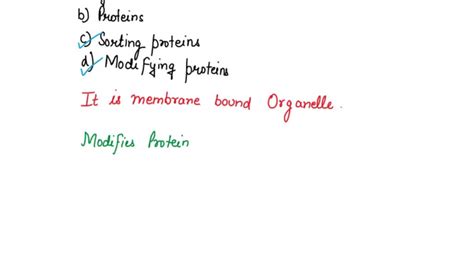 b) Proteins
c) Sorting proteins
d) Modifying proteins
It is membrane bound Organelle.
Modifies Protein